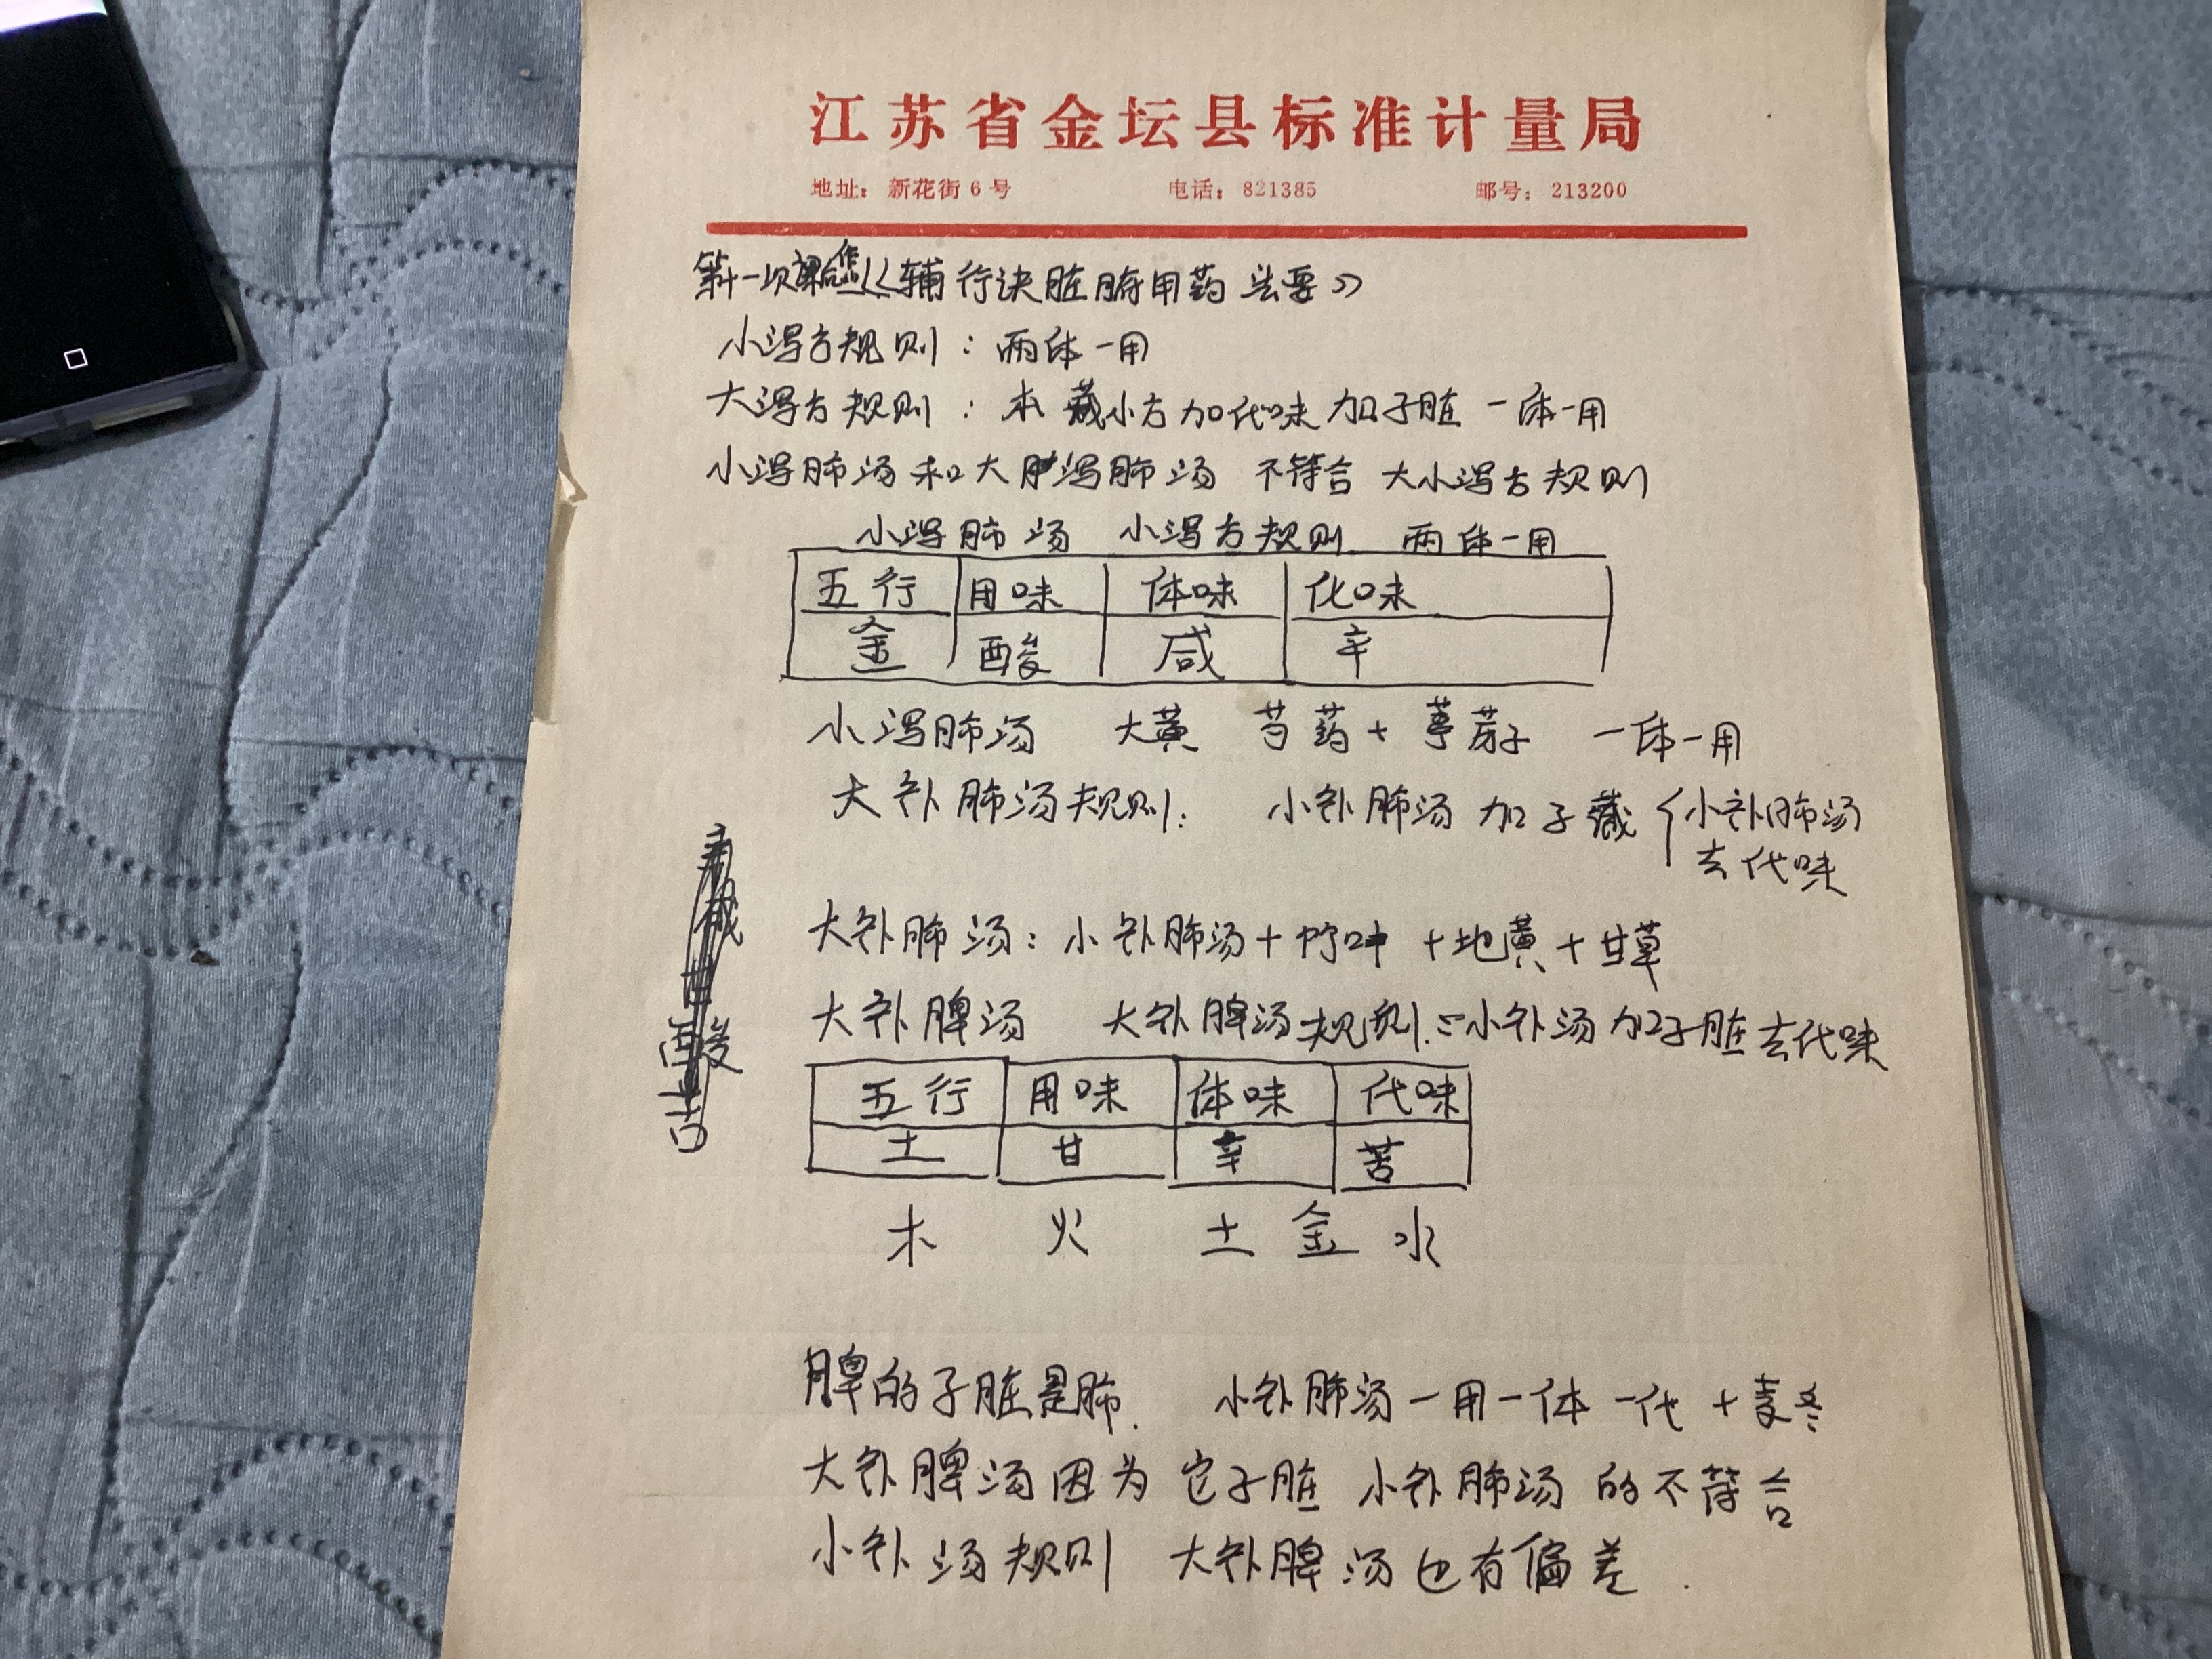 江苏省金坛县标准计量局
地址：新花街6号 电话：821385 邮号：213200
第十一次课后作《辅行诀脏腑用药法要》
小泻方规则：两体一用
大泻方规则：本藏小方加代味加子脏一体一用
小泻肺汤和大泻肺汤 不符合 大小泻方规则
小泻肺汤 小泻方规则 两体一用
五行 用味 体味 化味
金 酸 咸 辛
小泻肺汤 大黄 芍药+葶苈子 一体一用
大补肺汤规则： 小补肺汤 加子藏 小补肺汤
去代味
大补肺汤：小补肺汤+竹叶+地黄+甘草
大补脾汤 大补脾汤规则：小补汤加子脏去代味
五行 用味 体味 代味
土 甘 辛 苦
木 火 土 金 水
脾的子脏是肺. 小补肺汤一用一体一代+麦冬
大补脾汤因为它子脏 小补肺汤的不符合
小补汤规则 大补脾汤也有偏差.